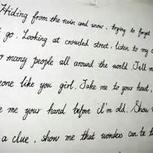 Hiding from the rain and snow, trying to forget
go. Looking at crowded street, listen to my o
so many people all around the world. Tell m
eone like you girl. Take me to your heart,
e me your hand before i'm old. Show
a clue, show me that wonders can be t